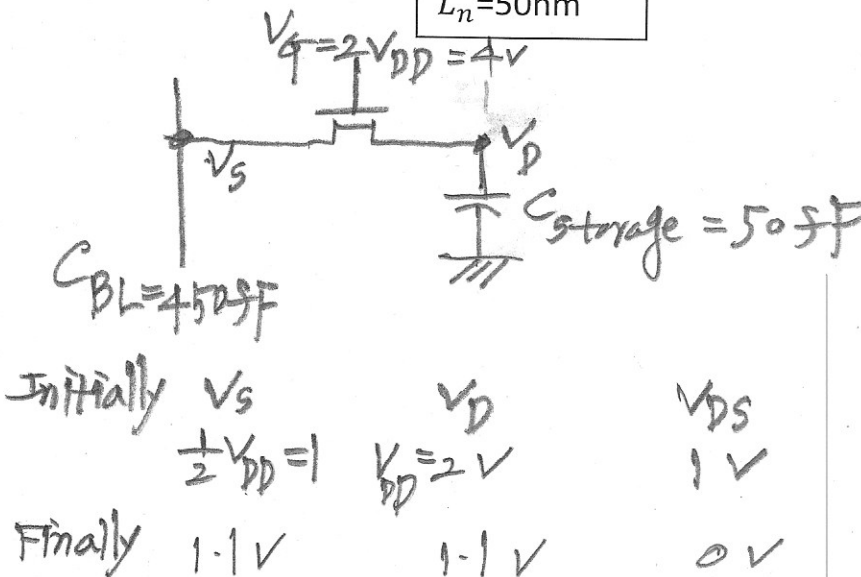 L_n=50nm
V_G=2V_DD=4V
V_S
V_D
C_Storage = 50fF
C_BL=450fF
Initially V_S V_D V_DS
1/2 V_DD=1 V_DD=2V 1V
Finally 1.1V 1.1V 0V